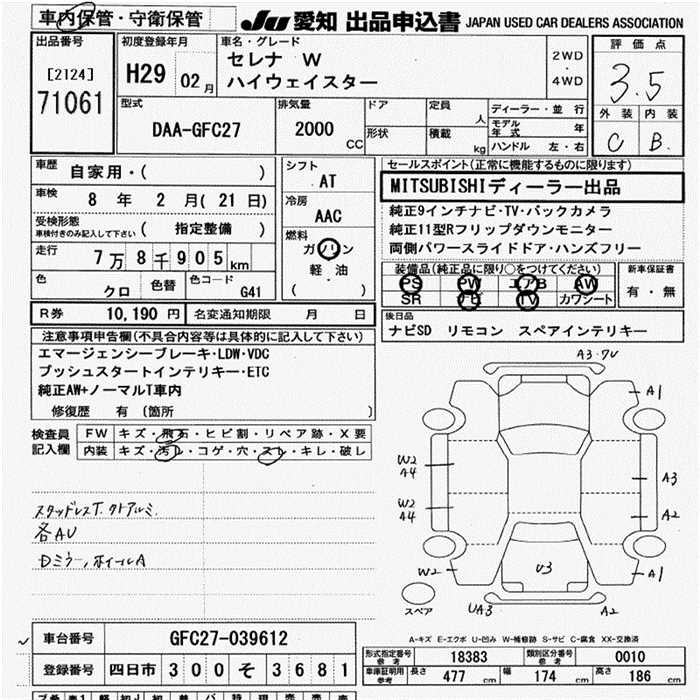 車内保管・守衛保管
JU 愛知 出品申込書 JAPAN USED CAR DEALERS ASSOCIATION
出品番号
[2124]
71061
初度登録年月
H29 02月
車名・グレード
セレナ W
ハイウェイスター
2WD
・
4WD
評価点
3.5
外装 内装
C B
型式
DAA-GFC27
排気量
2000 CC
ドア
形状
定員 人
積載 kg
ディーラー・並行
モデル年式 年
ハンドル 左・右
車歴
自家用・( )
車検
8年 2月(21日)
受検形態
車検付きのみ記入して下さい
( 指定整備 )
走行
7万8千905km
色
クロ
色替
色コード
G41
シフト
AT
冷房
AAC
燃料
ガソリン
軽油
( )
セールスポイント(正常に機能するものに限ります)
MITSUBISHIディーラー出品
純正9インチナビ・TV・バックカメラ
純正11型Rフリップダウンモニター
両側パワースライドドア・ハンズフリー
装備品(純正品に限り○をつけてください)
PS PW エアB AW
SR ナビ TV カワシート
新車保証書
有・無
R券 10,190円
名変通知期限 月 日
後日品
ナビSD リモコン スペアインテリキー
注意事項申告欄(不具合内容等は具体的に記入して下さい)
エマージェンシーブレーキ・LDW・VDC
プッシュスタートインテリキー・ETC
純正AW+ノーマルT車内
修復歴 有 (箇所 )
検査員
記入欄
FW キズ・飛石・ヒビ割・リペア跡・X要
内装 キズ・汚レ・コゲ・穴・スレ・キレ・破レ
スタッドレスT.クトアルミ.
各AU
Dミラー,ホイールA
A3・7U
A1
W2
A4
A3
W2
A4
A2
W2
U3
A1
スペア
UA3
A2
A-キズ E-エクボ U-凹み W-補修跡 S-サビ C-腐食 XX-交換済
車台番号
GFC27-039612
登録番号
四日市 300 そ 3681
形式指定番号
参考
18383
類別区分番号
参考
0010
車庫証明用
参考
長さ 477cm
幅 174cm
高さ 186cm